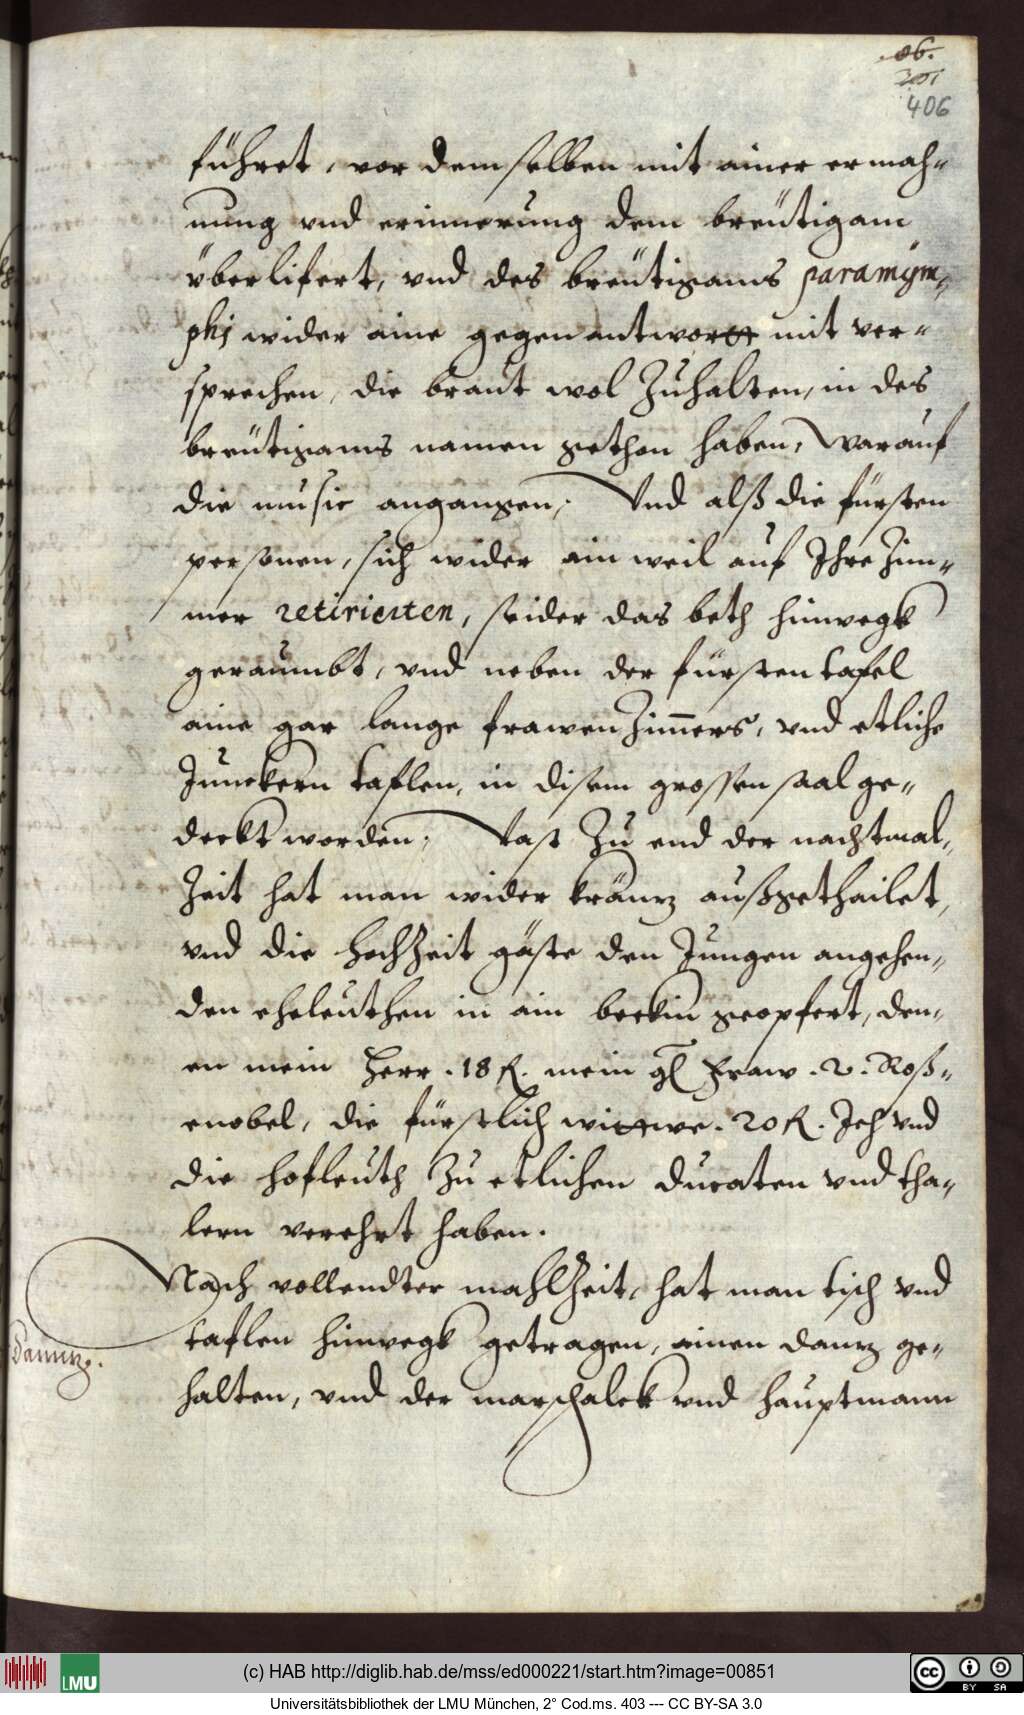 .06.
201
406
führet, vor demselben mit ainer ermah-
nung vnd erinnerung dem breütigam
überlifert, vnd des breütigams paramÿm-
phj wider aine gegenantwortt mit ver-
sprechen, die braut wol Zuhalten, in des
breütigams namen gethon haben, Warauf
die music angangen; Vnd alß die fürsten
personen, sich wider ain weil auf Ihre Zim-
mer retirierten, seider das beth hinwegk
geraumbt, vnd neben der fürsten tafel
aine gar lange frawen Zim̄ers, vnd etliche
Junckern taflen, in disem grossen saal ge-
deckt worden; Vast Zu end der nachtmal-
Zeit hat man wider kräntz außgethailet,
vnd die hochZeit gäste den Jungen angehen-
den eheleuthen in ain beckin geopfert, den-
en mein Herr .18 fl. mein gl Fraw .2. Roß-
enobel, die fürstlich wittwe .20 fl. Ich vnd
die hofleuth Zu etlichen ducaten vnd tha-
lern verehrt haben.
Nach vollendter mahlZeit, hat man tisch vnd
Danntz.
taflen hinwegk getragen, ainen dantz ge-
halten, vnd der marschalck vnd hauptmann
(c) HAB http://diglib.hab.de/mss/ed000221/start.htm?image=00851
LMU
cc BY SA
Universitätsbibliothek der LMU München, 2° Cod.ms. 403 --- CC BY-SA 3.0